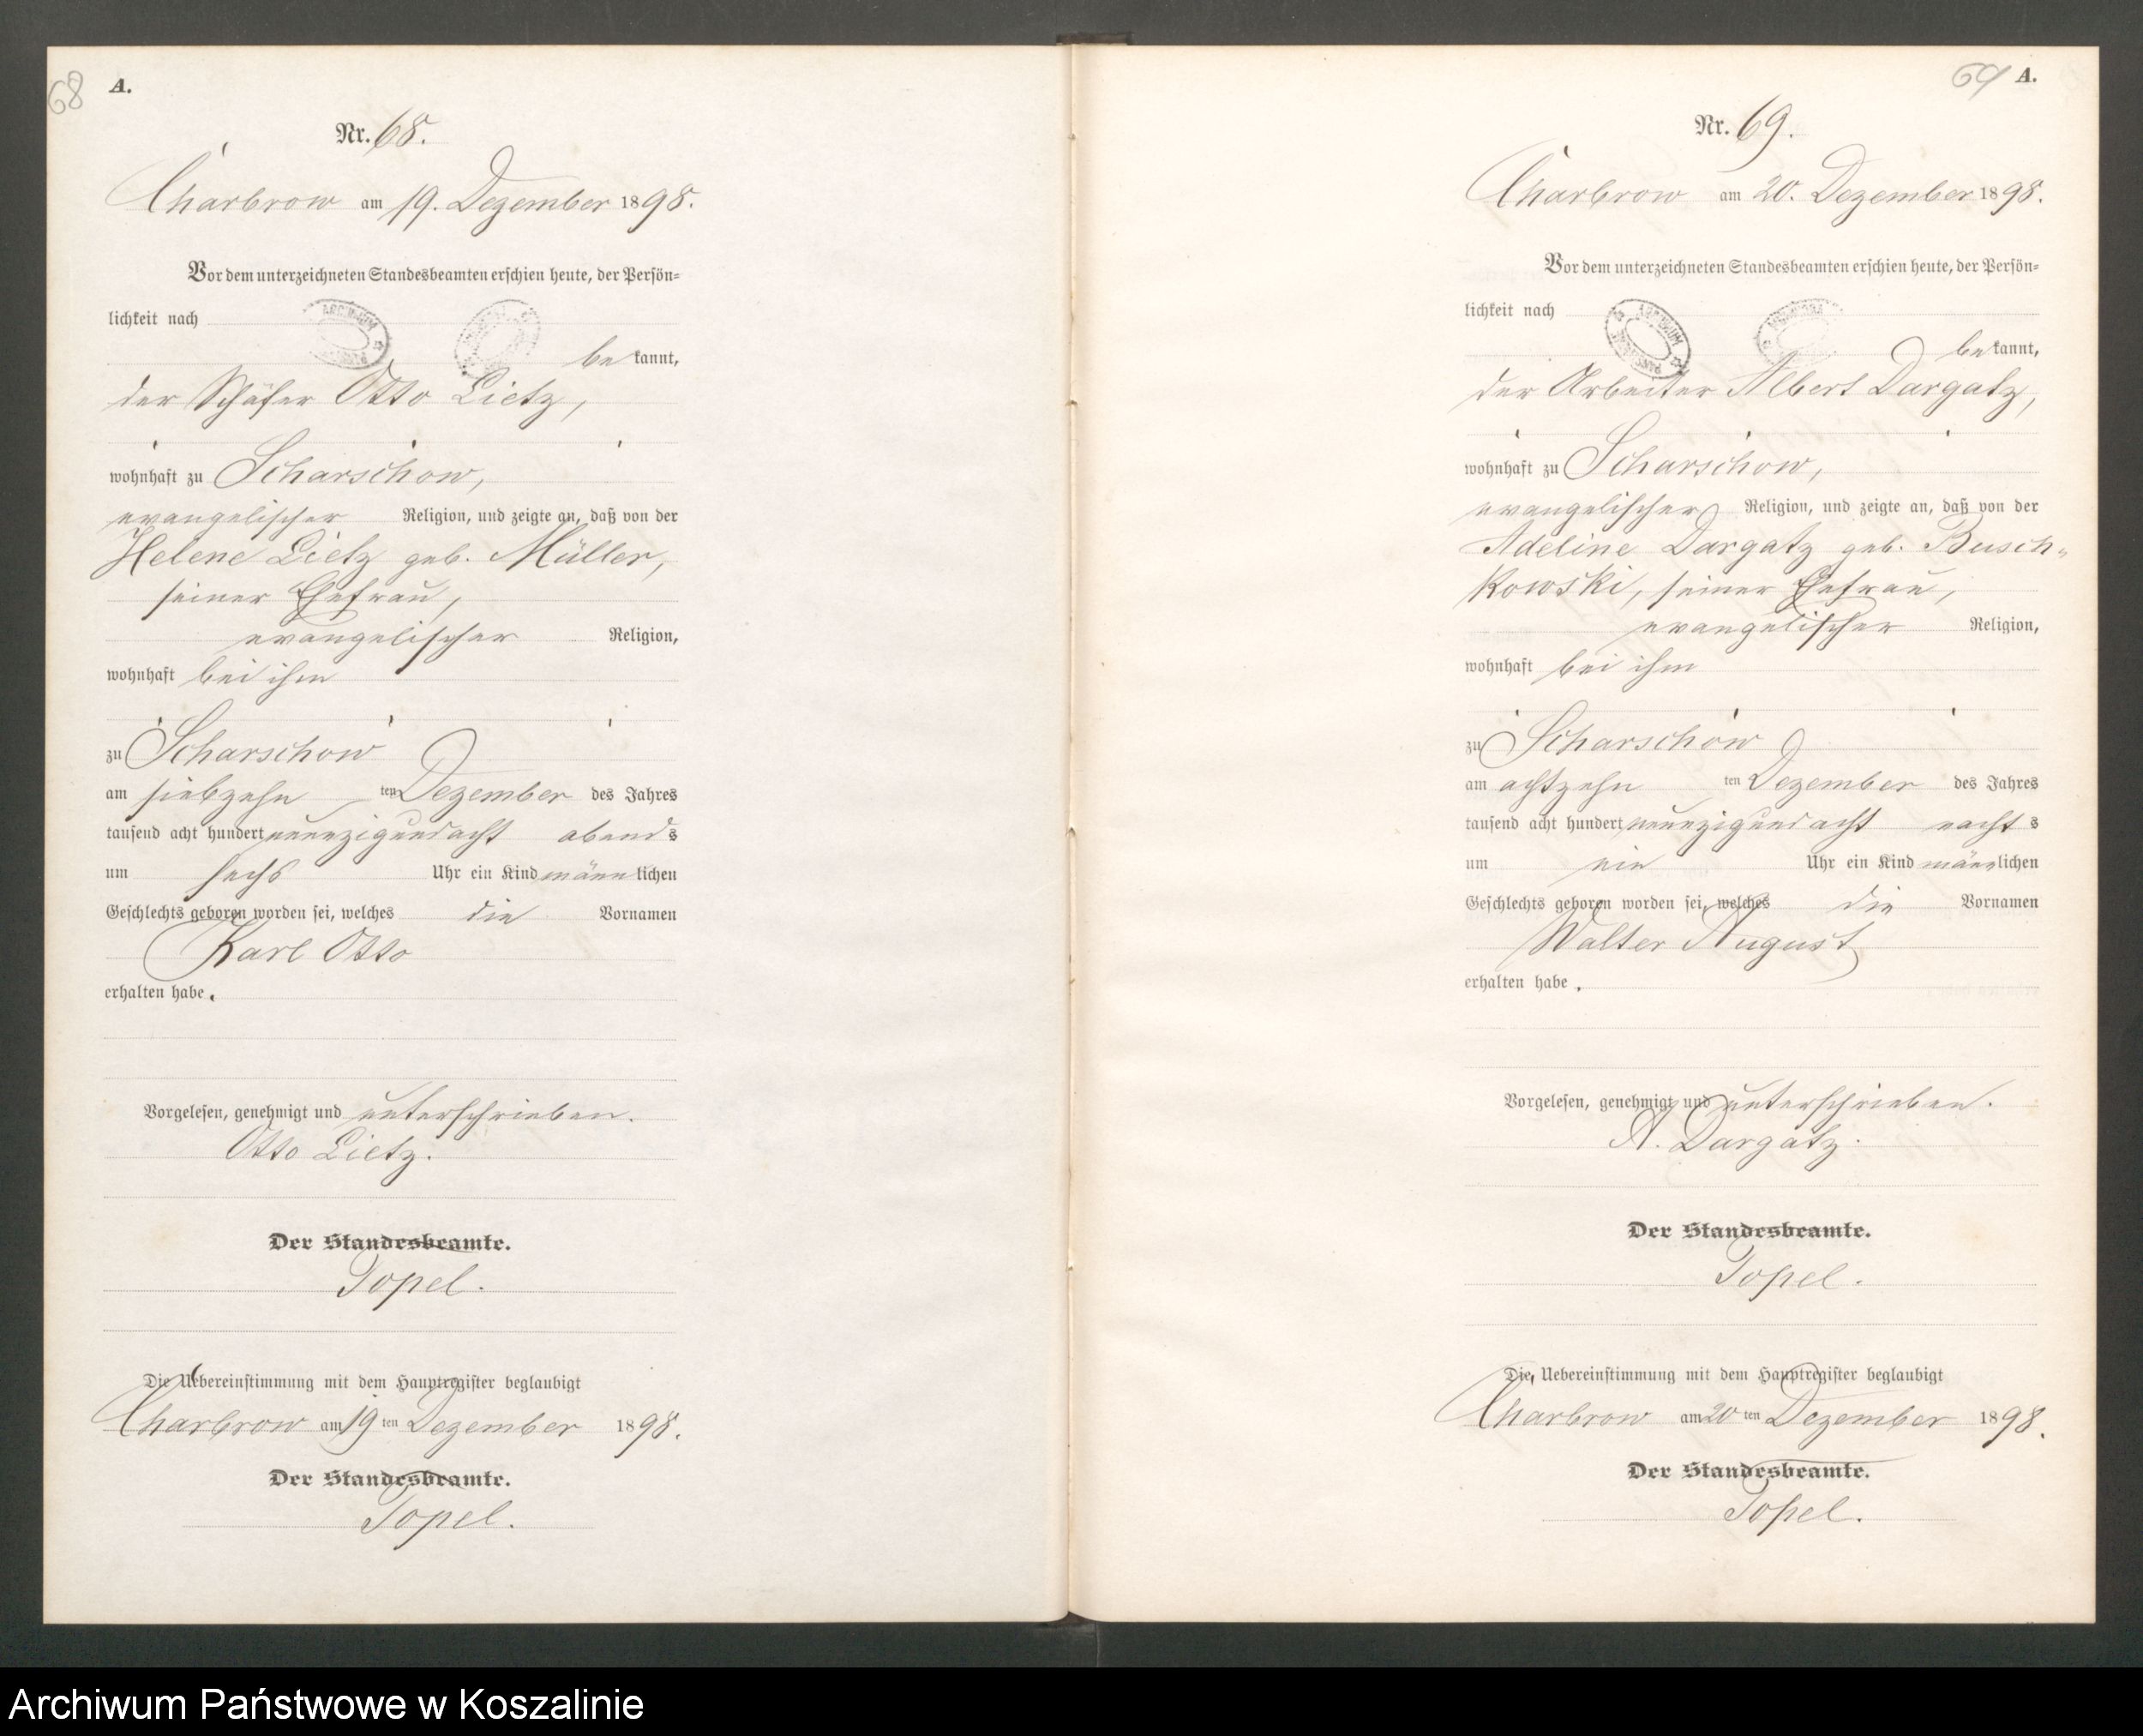 68
A.
Nr. 68.
Charbrow am 19. Dezember 1898.
Vor dem unterzeichneten Standesbeamten erschien heute, der Persön=
lichkeit nach
bekannt,
der Schäfer Otto Lietz,
wohnhaft zu Scharschow,
evangelischer Religion, und zeigte an, daß von der
Helene Lietz geb. Müller,
seiner Ehefrau,
evangelischer Religion,
wohnhaft bei ihm
zu Scharschow
am siebzehn ten Dezember des Jahres
tausend acht hundert neunzigundacht abends
um sechs Uhr ein Kind männlichen
Geschlechts geboren worden sei, welches die Vornamen
Karl Otto
erhalten habe.
Vorgelesen, genehmigt und unterschrieben.
Otto Lietz.
Der Standesbeamte.
Topel.
Die Uebereinstimmung mit dem Hauptregister beglaubigt
Charbrow am 19 ten Dezember 1898.
Der Standesbeamte.
Topel.
69 A.
Nr. 69.
Charbrow am 20. Dezember 1898.
Vor dem unterzeichneten Standesbeamten erschien heute, der Persön=
lichkeit nach
bekannt,
der Arbeiter Albert Dargatz,
wohnhaft zu Scharschow,
evangelischer Religion, und zeigte an, daß von der
Adeline Dargatz geb. Busch=
kowski, seiner Ehefrau,
evangelischer Religion,
wohnhaft bei ihm
zu Scharschow
am achtzehn ten Dezember des Jahres
tausend acht hundert neunzigundacht nachts
um ein Uhr ein Kind männlichen
Geschlechts geboren worden sei, welches die Vornamen
Walter August
erhalten habe.
Vorgelesen, genehmigt und unterschrieben.
A. Dargatz.
Der Standesbeamte.
Topel.
Die Uebereinstimmung mit dem Hauptregister beglaubigt
Charbrow am 20 ten Dezember 1898.
Der Standesbeamte.
Topel.
Archiwum Państwowe w Koszalinie